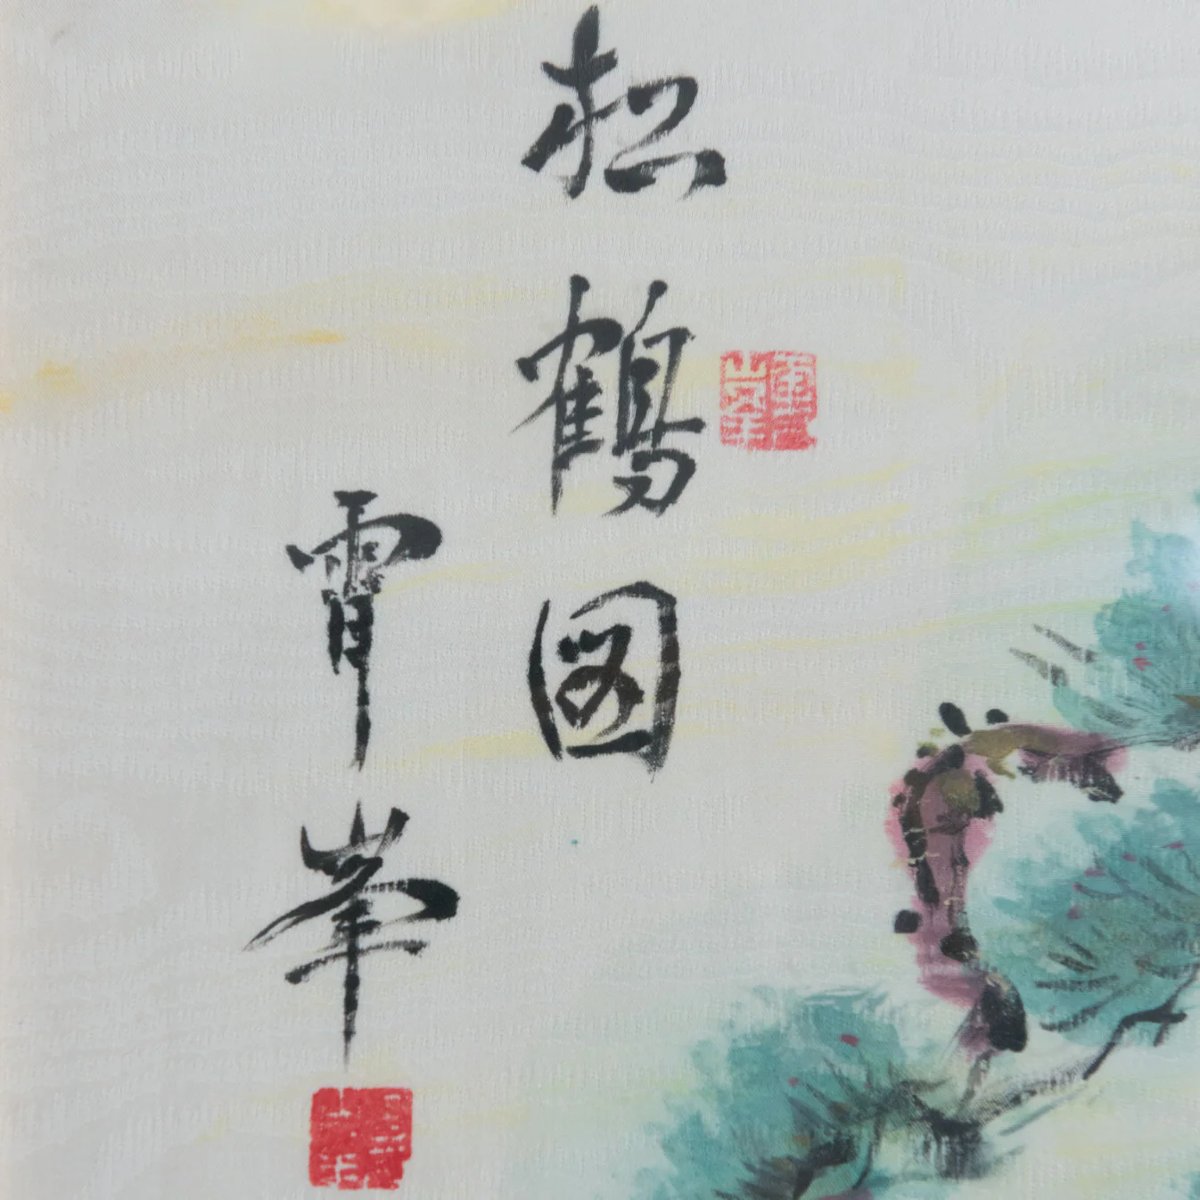 松鶴図
霄峯